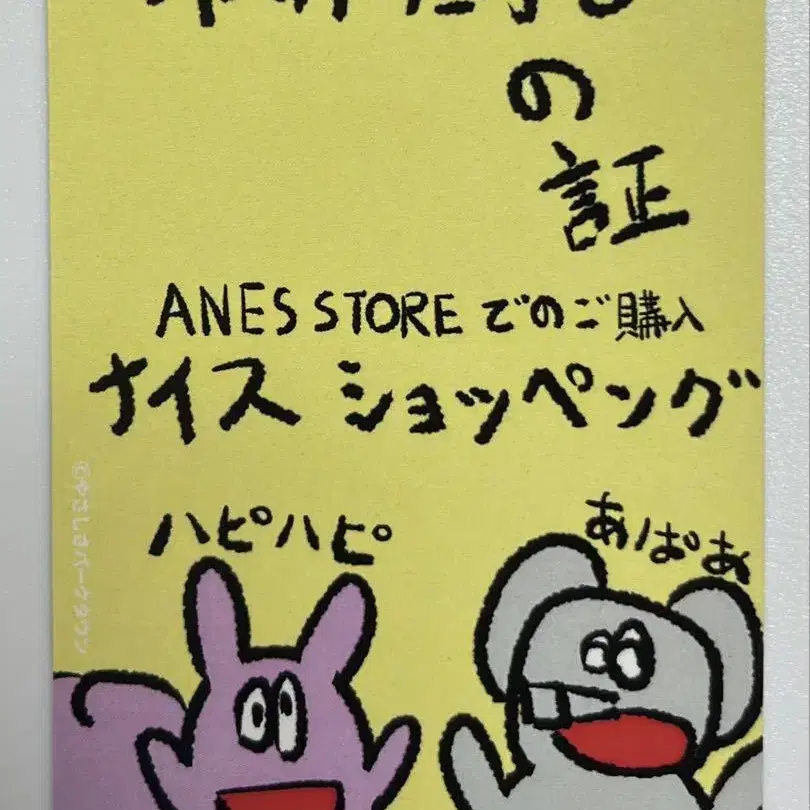 の
証
ANES STORE でのご購入
ナイス ショッペング
ハピハピ
あぱあ
©やさしさパークタウン